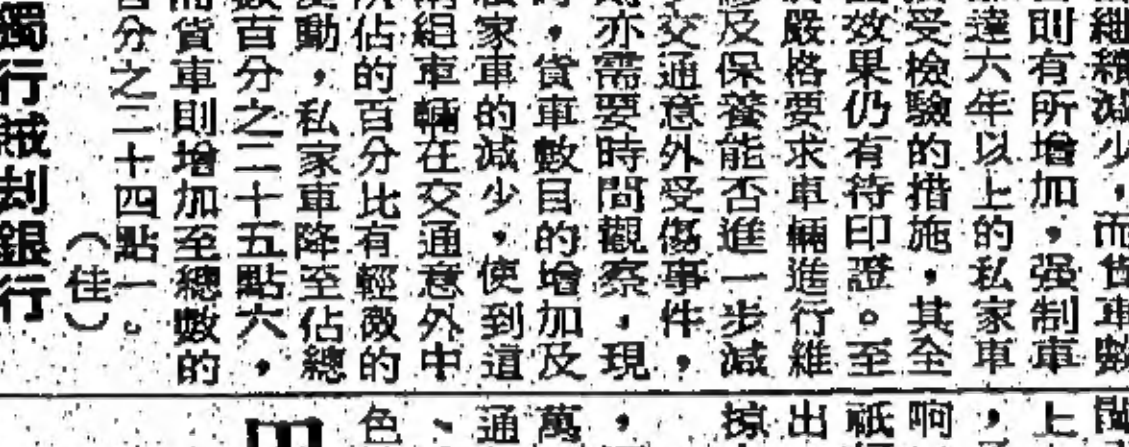 繼續減少，而貨車數
則有所增加，强制車
達六年以上的私家車
受檢驗的措施，其全
效果仍有待印證。至
嚴格要求車輛進行維
及保養能否進一步減
交通意外受傷事件，
亦需要時間觀察，現
，貨車數目的增加及
家車的減少，使到這
組車輛在交通意外中
佔的百分比有輕微的
動，私家車降至佔總
數百分之二十五點六，
而貨車則增加至總數的
百分之二十四點一。
（佳）
獨行賊刦銀行
上
，
啊
祇
出
掠
，
萬
通
、
色